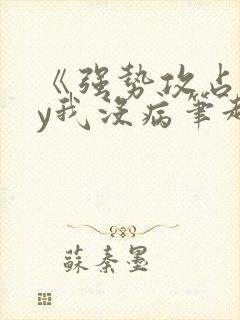 《强势攻占
y我没病笔趣
蘇秦墨